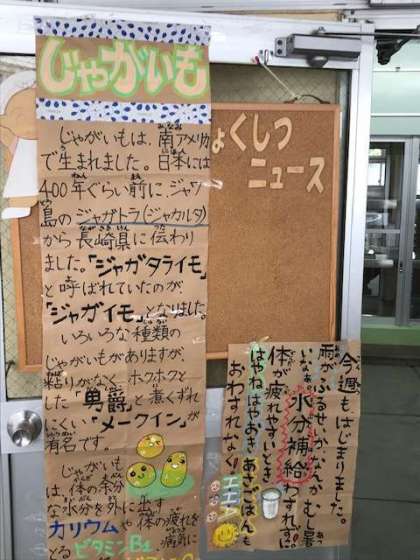 じゃがいも
じゃがいもは、南アメリカ
で生まれました。日本には
400年ぐらい前に、ジャワ
島のジャガトラ(ジャカルタ)
から長崎県に伝わり
ました。「ジャガタライモ」
と呼ばれていたのが
「ジャガイモ」となりました。
いろいろな種類の
じゃがいもがありますが、
粘りがなく、ホクホクと
した「男爵」と煮くずれ
にくい「メークイン」が
有名です。
じゃがいも
は、体の余分
な水分を外に出す
カリウムや体の疲れを
とるビタミンB1
ょくしつ
ニュース
今週も、はじまりました。
雨がふるせいか、
体が疲れやすいときは
水分補給わすれずに
はやねはやおきあさごはんも
おわすれなく!